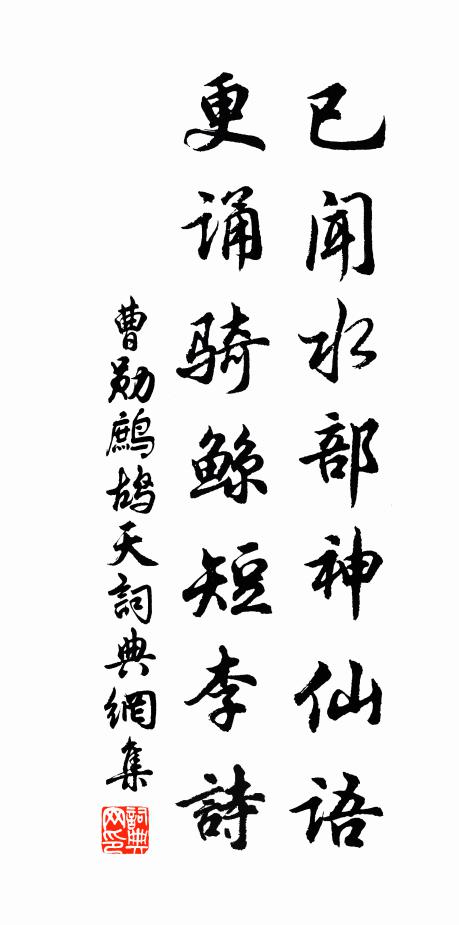 已闻水部神仙语
更诵骑鲸短李詩
曹勋鹧鸪天詞典網集
詞典网印